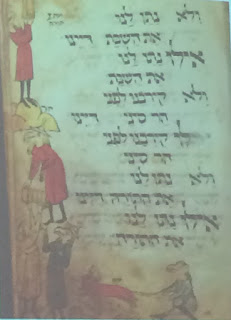 ולא נתן לנו
את השבת דיינו
אילו נתן לנו
את השבת
ולא קירבנו לפני
הר סיני דיינו
אילו קירבנו לפני
הר סיני
ולא נתן לנו
את התורה דיינו
אילו נתן לנו
את התורה